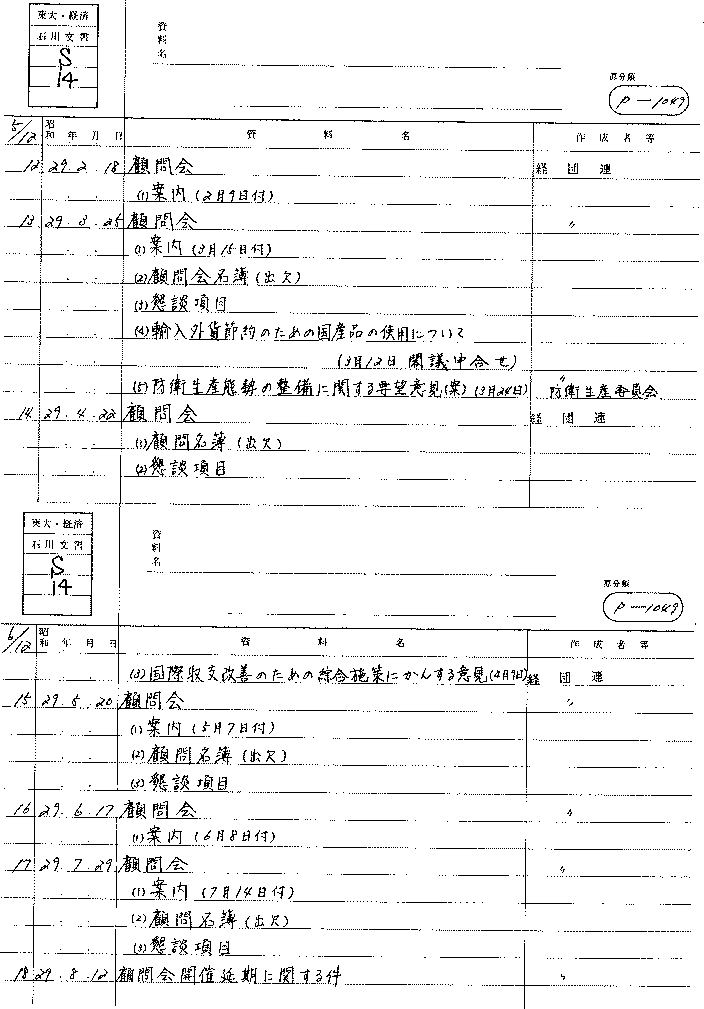 東大・経済
石川文書
S
14
資料名
原分類
P-1049
5/12
昭和 年 月 日 資料名 作成者等
12 29.2.18 顧問会 経団連
(1) 案内 (2月9日付)
13 29.3.25 顧問会 〃
(1) 案内 (3月15日付)
(2) 顧問会名簿 (出欠)
(3) 懇談項目
(4) 輸入外貨節約のための国産品の使用について
(3月12日 閣議申合せ)
(5) 防衛生産態勢の整備に関する要望意見(案) (3月24日) 〃 防衛生産委員会
14 29.4.22 顧問会 経団連
(1) 顧問名簿 (出欠)
(2) 懇談項目
東大・経済
石川文書
S
14
資料名
原分類
P-1049
6/12
昭和 年 月 日 資料名 作成者等
(3) 国際収支改善のための綜合施策にかんする意見 (4月9日) 経団連
15 29.5.20 顧問会 〃
(1) 案内 (5月7日付)
(2) 顧問名簿 (出欠)
(3) 懇談項目
16 29.6.17 顧問会 〃
(1) 案内 (6月8日付)
17 29.7.29 顧問会 〃
(1) 案内 (7月14日付)
(2) 顧問名簿 (出欠)
(3) 懇談項目
18 29.8.12 顧問会開催延期に関する件 〃